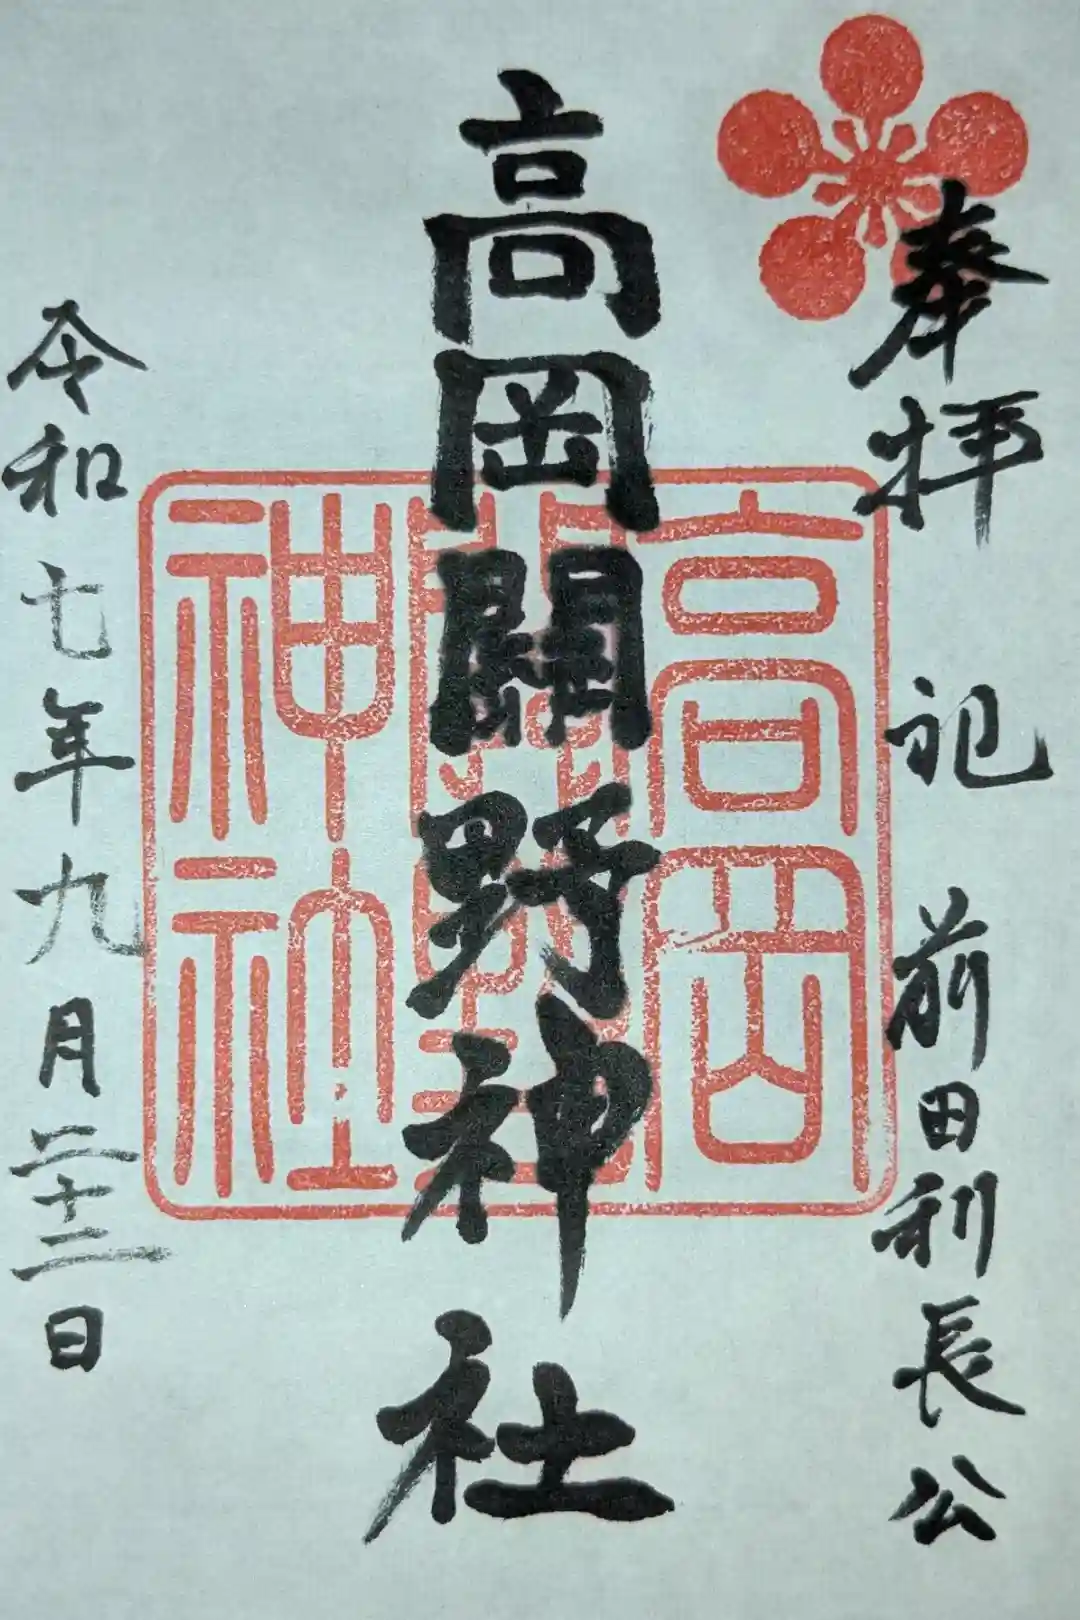 奉拝 祀 前田利長公
高岡關野神社
令和七年九月二十二日
高岡
關野
神社